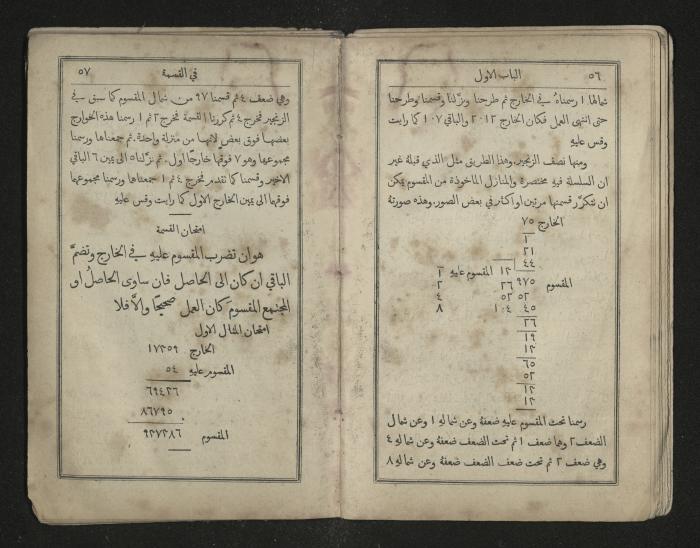 ٥٦ الباب الاول
شمالها ١ رسمناهُ في الخارج ثم طرحنا ونزّلنا وقسمنا وطرحنا
حتى انتهى العمل فكان الخارج ٢٠١٢ والباقي ١٠٧ كما رايت
وقس عليهِ
ومنها نصف الزنجير. وهذا الطريق مثل الذي قبلهُ غير
ان السلسلة فيهِ مختصرة والمنازل الماخوذة من المقسوم يمكن
ان تتكرَّر قسمتها مرتين او اكثر في بعض الصور. وهذه صورتهُ
الخارج ٧٥
١
٢١
٤٤
المقسوم ٩٧٥ ١٣ المقسوم عليهِ ١
٥٢ ٢٦ ٢
٤٥ ٥٢ ٤
٢٦ ١٠٤ ٨
١٩
١٣
٦٥
٥٢
١٣
١٣
رسمنا تحت المقسوم عليهِ ضعفهُ وعن شمالهِ ١ وعن شمال
الضعف ٢ وها ضعف ١ ثم تحت الضعف ضعفهُ وعن شمالهِ ٤
وهي ضعف ٢ ثم تحت ضعف الضعف ضعفهُ وعن شمالهِ ٨
في القسمة ٥٧
وهي ضعف ٤ ثم قسمنا ٩٧ من شمال المقسوم كما سبق في
الزنجير فخرج ٤ ثم كررنا القسمة فخرج ٢ ثم ١ رسمنا هذه الخوارج
بعضها فوق بعض لانها من منزلة واحدة. ثم جمعناها ورسمنا
مجموعها وهو ٧ فوقها خارجًا اول. ثم نزّلنا ٥ الى يمين ٦ الباقي
الاخير وقسمنا كما تقدم فخرج ٤ ثم ١ جمعناها ورسمنا مجموعها
فوقها الى يمين الخارج الاول كما رايت وقس عليهِ
امتحان القسمة
هو ان تضرب المقسوم عليهِ في الخارج وتضمَّ
الباقي ان كان الى الحاصل فان ساوى الحاصلُ او
المجتمع المقسومَ كان العمل صحيحًا والَّا فلا
امتحان المثال الاول
الخارج ١٧٣٥٩
المقسوم عليهِ ٥٤
٦٩٤٣٦
٨٦٧٩٥
المقسوم ٩٣٧٣٨٦